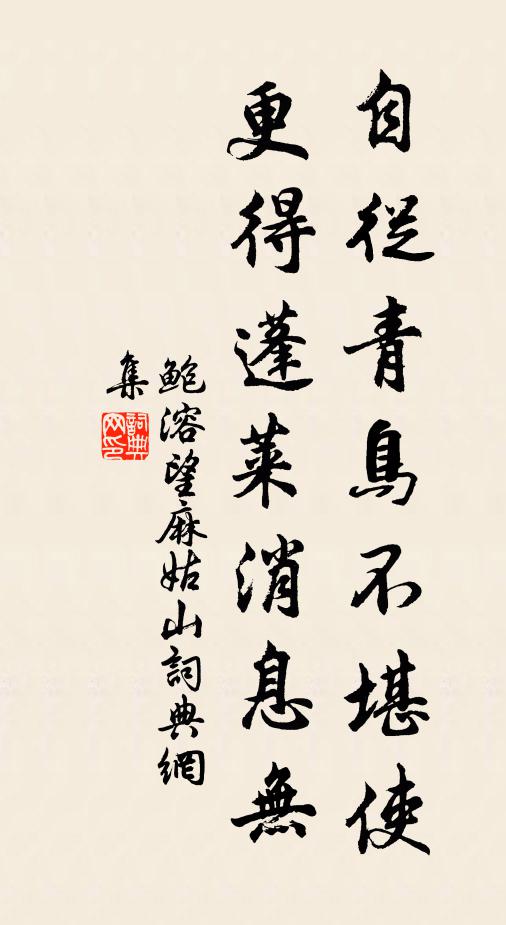 自從青鳥不堪使
更得蓬萊消息無
鮑溶望麻姑山詞典網
集
詞典
网印